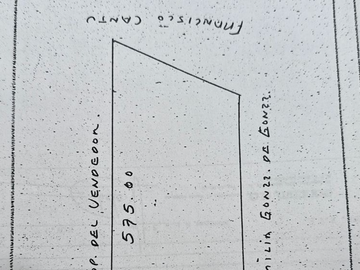 FRANCISCO CANTU
OP. DEL VENDEDOR.
575.00
MILIA GONZZ. DE GONZZ.